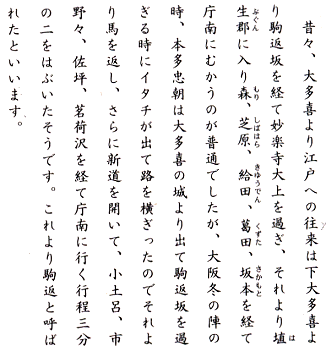 昔々、大多喜より江戸への往来は下大多喜よ
り駒返坂を経て妙楽寺大上を過ぎ、それより埴
は
生郡に入り森、芝原、給田、葛田、坂本を経て
ぶぐん もり しばはら きゆうでん くずた さかもと
庁南にむかうのが普通でしたが、大阪冬の陣の
時、本多忠朝は大多喜の城より出て駒返坂を過
ぎる時にイタチが出て路を横ぎったのでそれよ
り馬を返し、さらに新道を開いて、小土呂、市
野々、佐坪、茗荷沢を経て庁南に行く行程三分
の二をはぶいたそうです。これより駒返と呼ば
れたといいます。